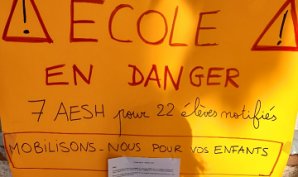 ECOLE
EN DANGER
7 AESH pour 22 élèves notifiés
MOBILISONS-NOUS POUR VOS ENFANTS